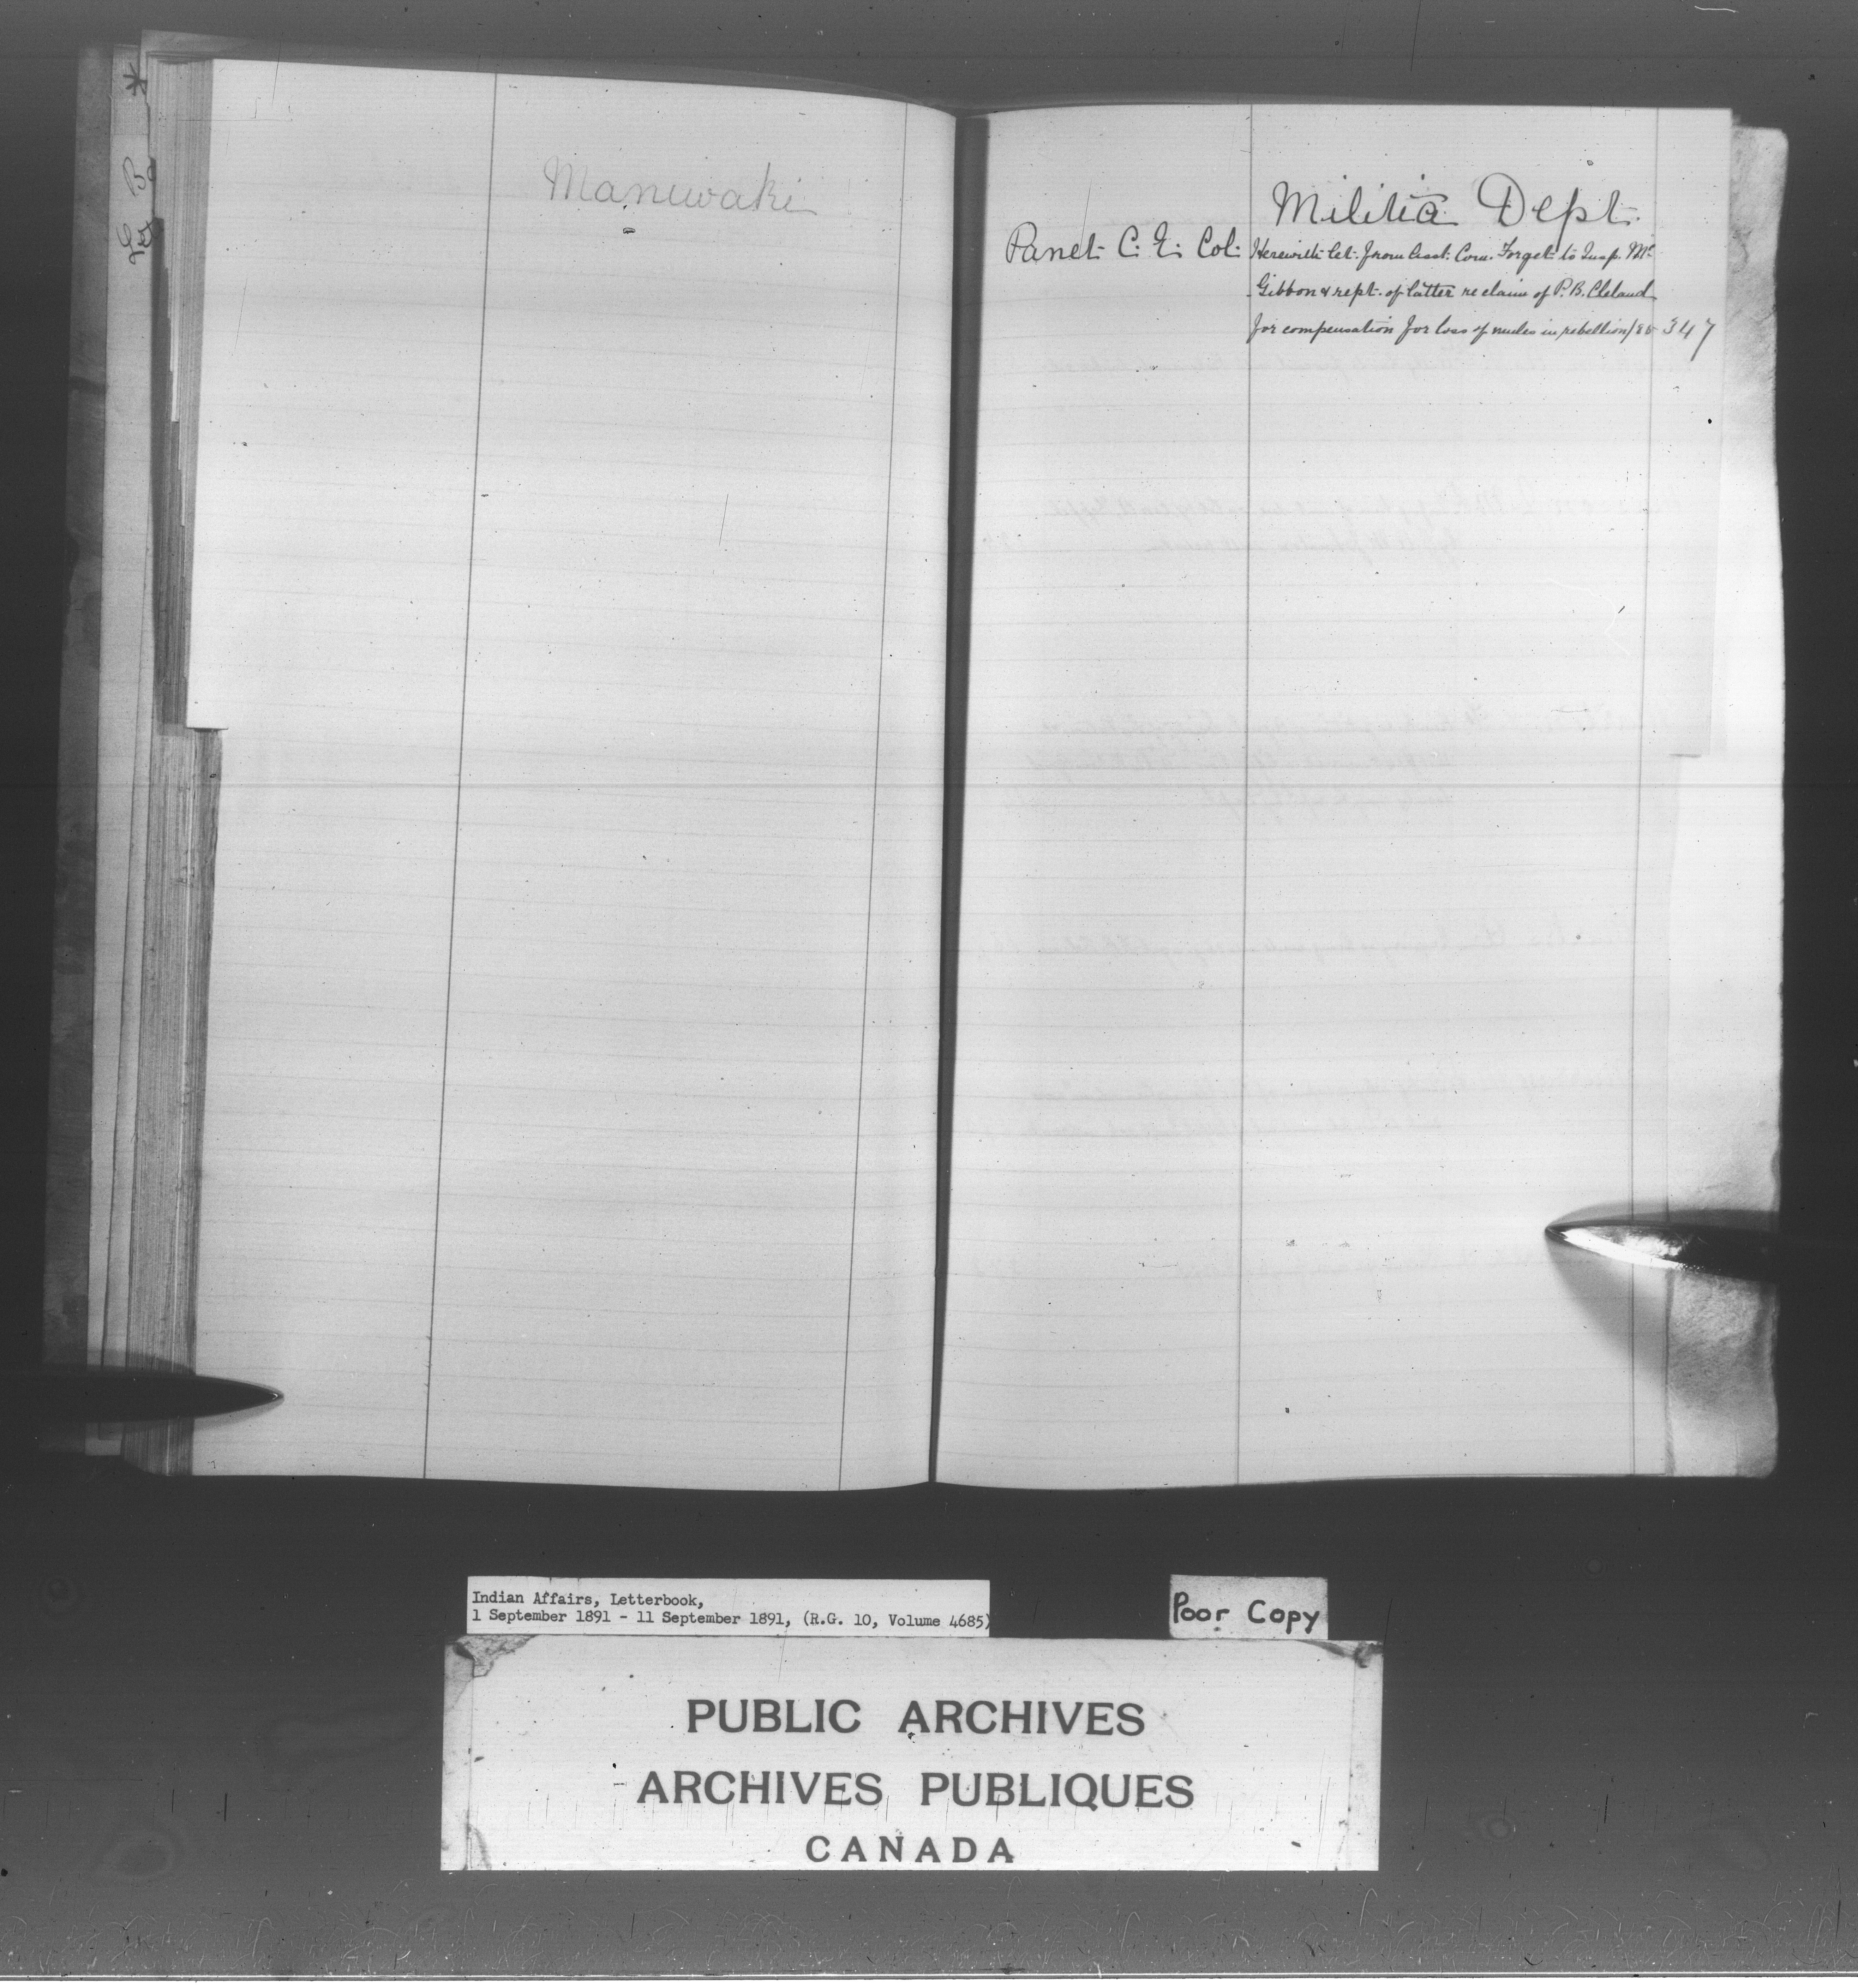 Maniwaki
Militia Dept.
Panet C. E. Col. Herewith let. from Asst. Com. Forget to Insp. Mc
Gibbon & rept. of latter re claim of P. B. Cleland
for compensation for loss of mules in rebellion/85 347
Indian Affairs, Letterbook,
1 September 1891 - 11 September 1891, (R.G. 10, Volume 4685)
Poor Copy
PUBLIC ARCHIVES
ARCHIVES PUBLIQUES
CANADA